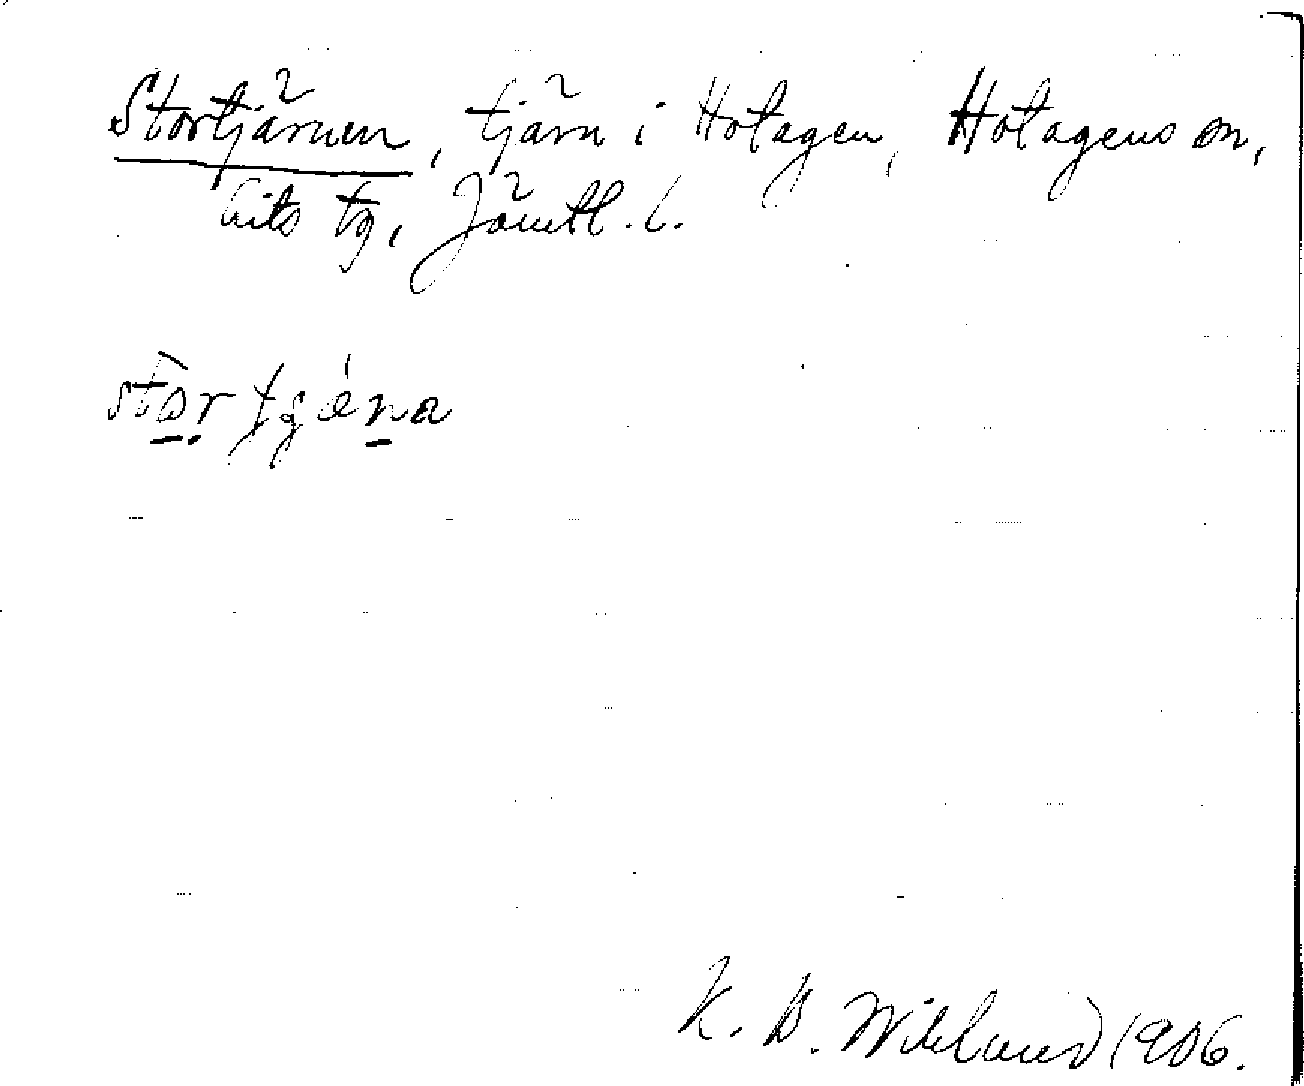 Stortjärnen, tjärn i Hotagen, Hotagens sn,
Lits tg, Jämtl. l.
stor tjæna
K. B. Wiklund 1906.